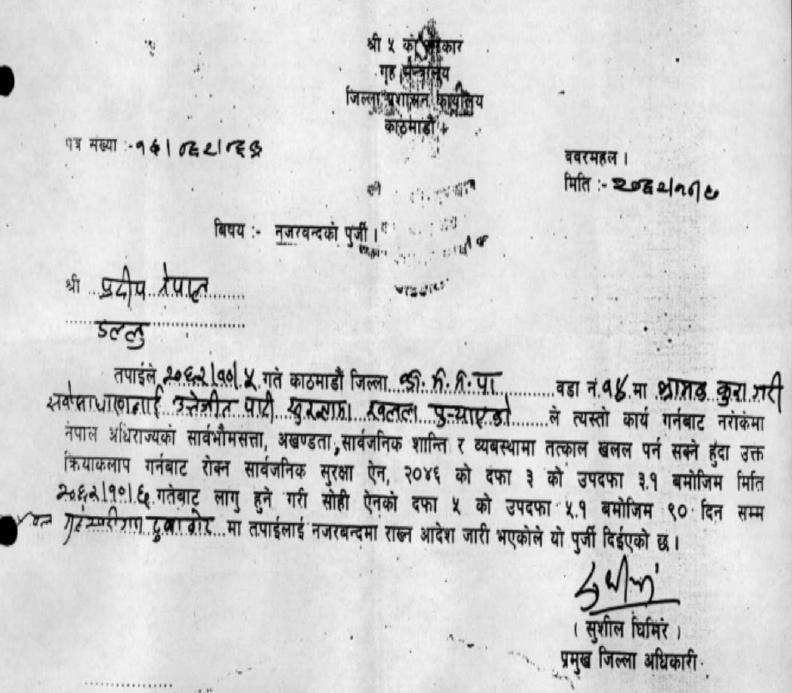 श्री ५ को सरकार
गृह मन्त्रालय
जिल्ला प्रशासन कार्यालय
काठमाडौं
पत्र संख्या :-
बबरमहल ।
मिति :- २०६२।१०।६
बिषय :- नजरबन्दको पुर्जी ।
श्री प्रदीप नेपाल
डल्लु
तपाईले २०६२।१०।५ गते काठमाडौं जिल्ला का. म. न. पा वडा नं. १४ मा भ्रामक कुरा गरी
सर्वसाधारणलाई उत्तेजीत पारी सुरक्षामा खलल पुऱ्याएको ले त्यस्तो कार्य गर्नबाट नरोकेमा
नेपाल अधिराज्यको सार्वभौमसत्ता, अखण्डता, सार्वजनिक शान्ति र व्यवस्थामा तत्काल खलल पर्न सक्ने हुंदा उक्त
क्रियाकलाप गर्नबाट रोक्न सार्वजनिक सुरक्षा ऐन, २०४६ को दफा ३ को उपदफा ३.१ बमोजिम मिति
२०६२।१०।६ गतेबाट लागु हुने गरी सोही ऐनको दफा ५ को उपदफा ५.१ बमोजिम ९० दिन सम्म
मा तपाईलाई नजरबन्दमा राख्न आदेश जारी भएकोले यो पुर्जी दिईएको छ ।
( सुशील घिमिरे )
प्रमुख जिल्ला अधिकारी